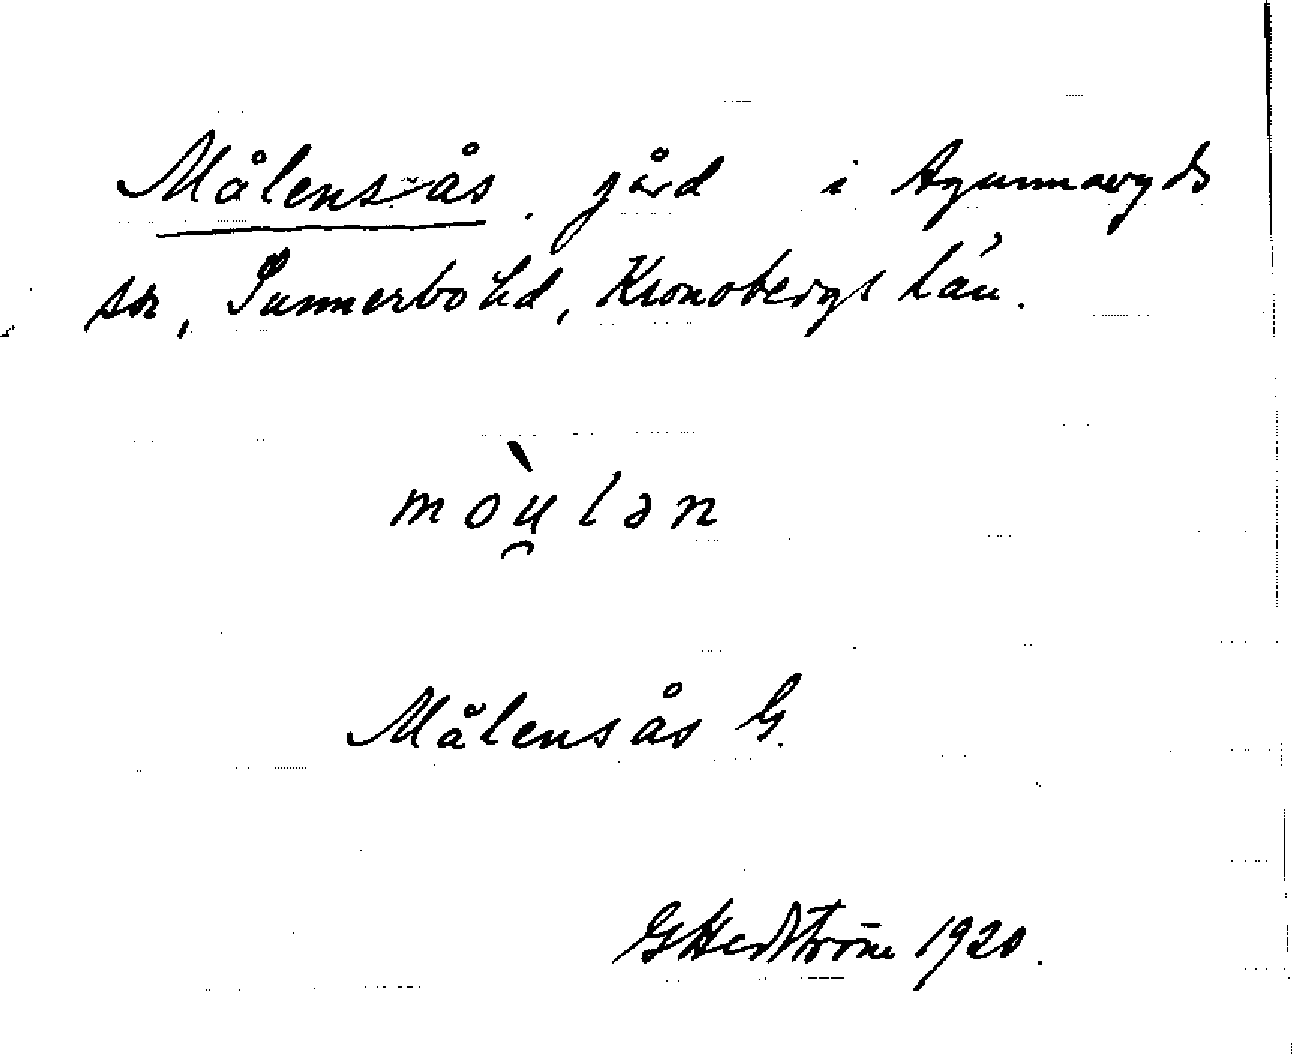 Målensås. gård i Agunnaryds
sn, Sunnerbo hd, Kronobergs län.
mòu̯lən
Målensås G.
GHedström 1920.